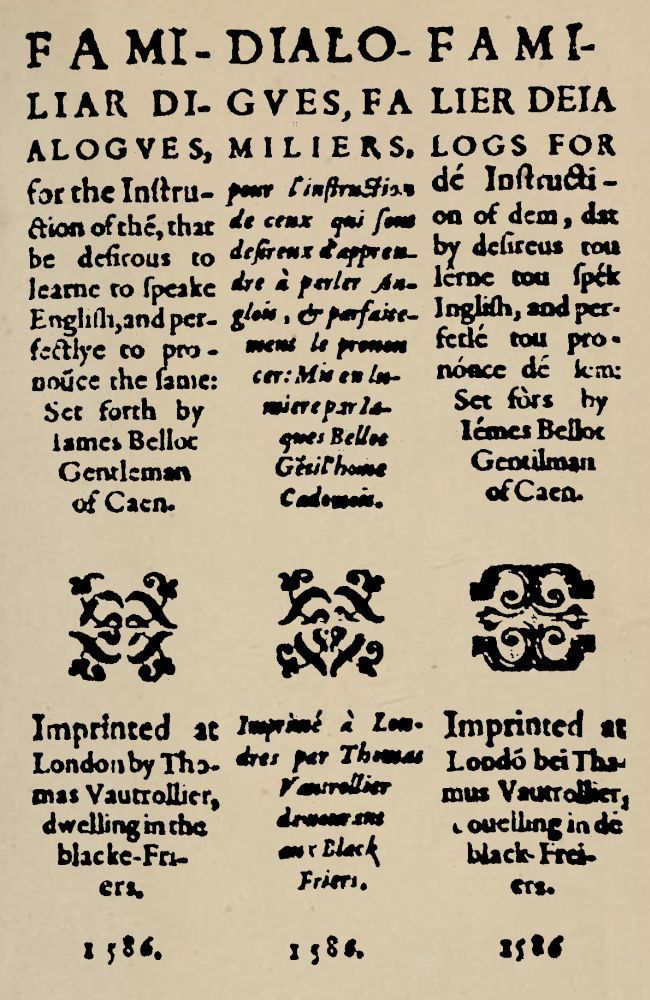 FAMI-
LIAR DI-
ALOGVES,
for the Inſtru-
ction of thē, that
be deſirous to
learne to ſpeake
Engliſh, and per-
fectlye to pro-
noūce the ſame:
Set forth by
Iames Bellot
Gentleman
of Caen.
Imprinted at
London by Tho-
mas Vautrollier,
dwelling in the
blacke-Fri-
ers.
1586.
DIALO-
GVES, FA
MILIERS,
pour l'inſtruction
de ceux qui ſont
deſireux d'appren-
dre à parler An-
glois, & parfaite-
ment le pronon
cer: Mis en lu-
miere par Ia-
ques Bellot
Gētil'home
Cadomois.
Imprimé à Lon-
dres par Thomas
Vautrollier
demourant
aux Black
Friers.
1586.
FAMI-
LIER DEIA
LOGS FOR
dé Inſtructi-
on of dem, dat
by deſireus tou
lêrne tou ſpék
Ingliſh, and per-
fetlé tou pro-
nónce dé ſem:
Set fòrs by
Iémes Bellot
Gentilman
of Caen.
Imprinted at
Londó bei Tha-
mus Vautrollier,
ouelling in dé
black-Frei-
ers.
1586